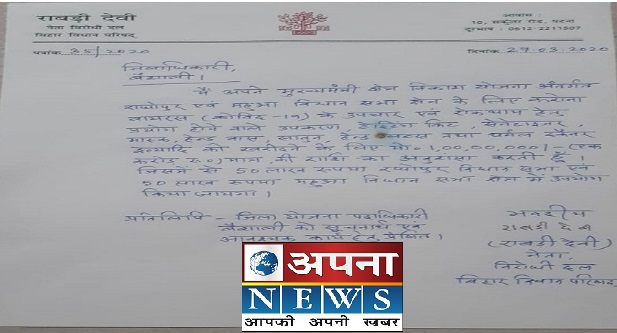 राबड़ी देवी
नेता विरोधी दल
बिहार विधान परिषद्
आवास :
10, सर्कुलर रोड, पटना
दूरभाष : 0612-2211507
पत्रांक 35/2020
दिनांक 29.03.2020
जिलाधिकारी,
वैशाली।
मैं अपने मुख्यमंत्री क्षेत्र विकास योजना अंतर्गत
राघोपुर एवं महुआ विधान सभा क्षेत्र के लिए करोना
वायरस (कोविड-19) के उपचार एवं रोकथाम हेतु
प्रयोग होने वाले उपकरण टेस्टिंग किट, सेनेटाइजर,
मास्क, हैन्ड वाश साबुन, हैन्ड तथा थर्मल स्कैनर
इत्यादि को खरीदने के लिए मो० 1,00,00,000/- (एक
करोड़ रु०) मात्र की राशि का अनुशंसा करती हूँ।
जिसमें से 50 लाख रुपया राघोपुर विधान सभा एवं
50 लाख रुपया महुआ विधान सभा क्षेत्र में उपयोग
किया जायेगा।
प्रतिलिपि - जिला योजना पदाधिकारी
वैशाली को सूचनार्थ एवं
आवश्यक कार्य हेतु प्रेषित।
भवदीय
राबड़ी देवी
(राबड़ी देवी)
नेता,
विरोधी दल
बिहार विधान परिषद
अपना
NEWS
आपकी अपनी खबर